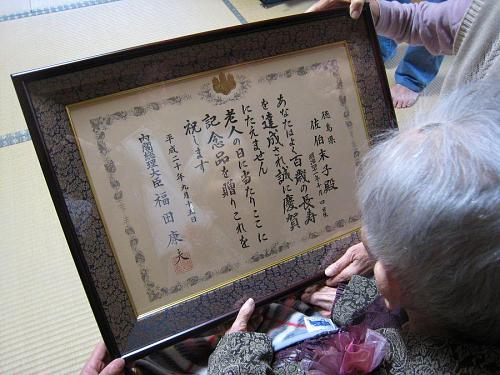 徳島県
佐伯末子殿
あなたはよく百歳の長寿
を達成され誠に慶賀
にたえません
老人の日に当たりここに
記念品を贈りこれを
祝します
平成二十年九月十五日
内閣総理大臣 福田康夫